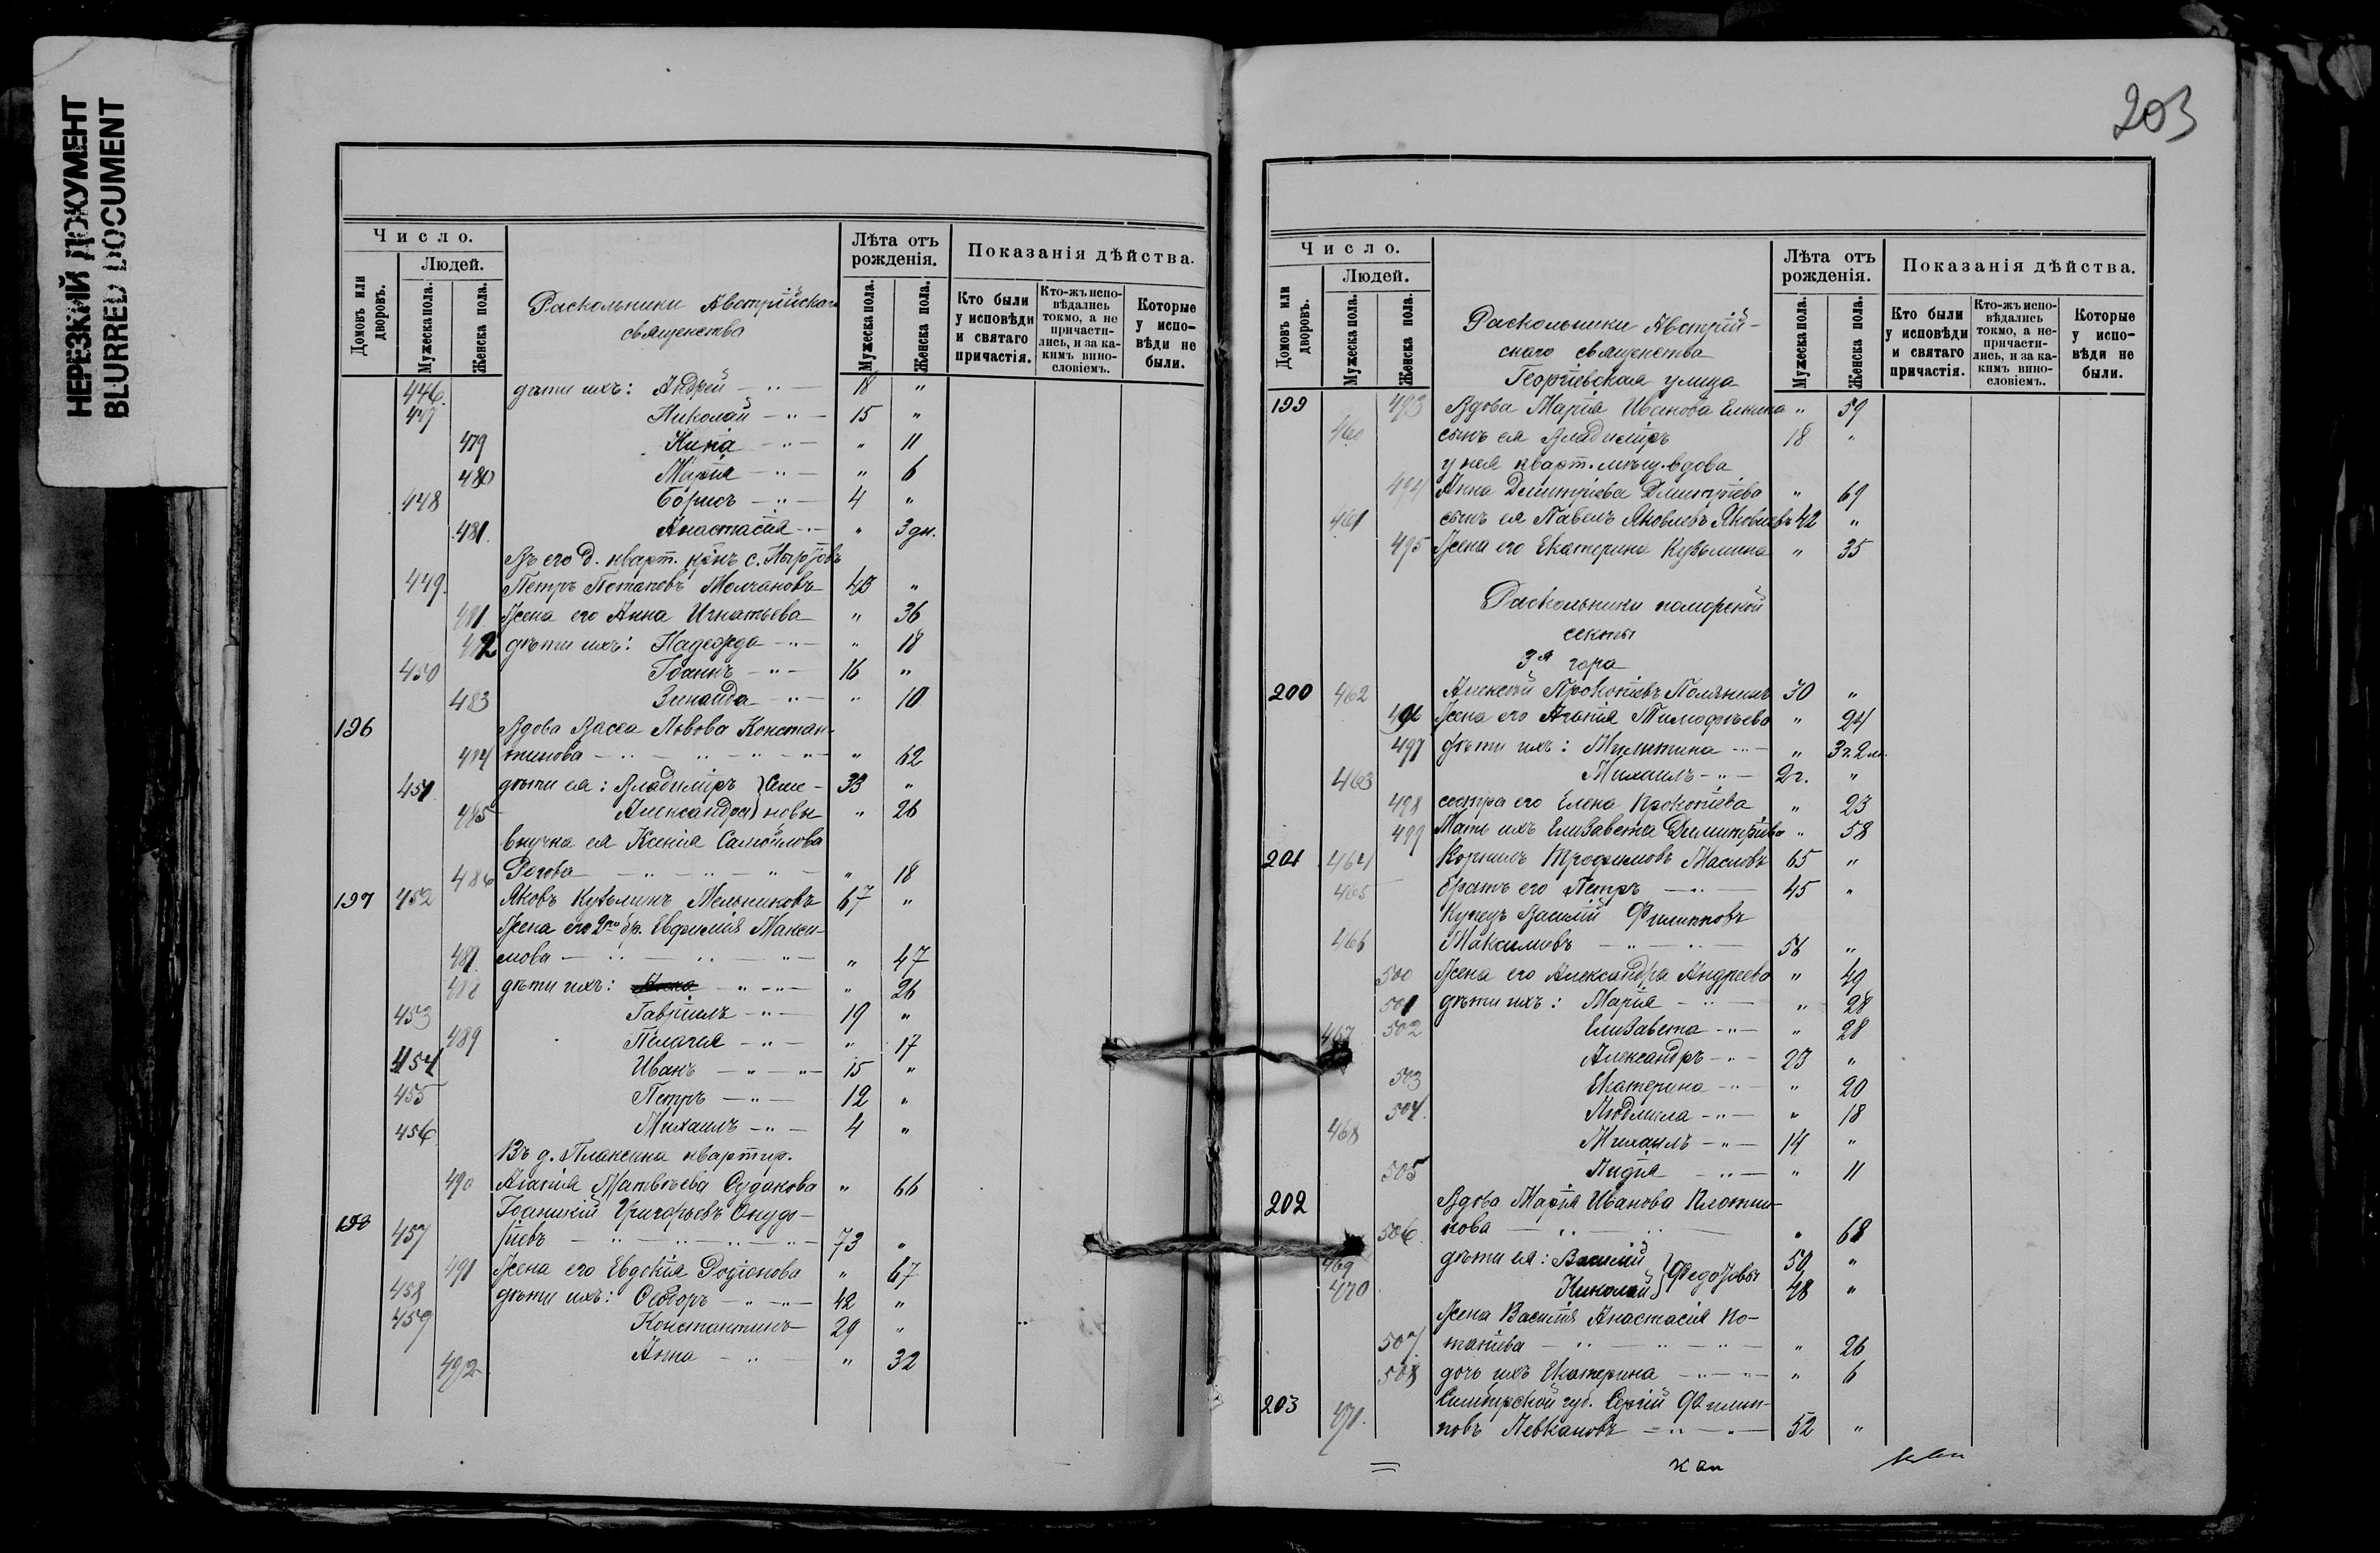 НЕРЕЗКИЙ ДОКУМЕНТ
BLURRED DOCUMENT
Число.
Людей.
Домовъ или дворовъ.
Мужеска пола.
Женска пола.
Раскольники Австрійскаго
священства
Лѣта отъ рожденія.
Мужеска пола.
Женска пола.
Показанія дѣйства.
Кто были у исповѣди и святаго причастія.
Кто-жъ исповѣдались токмо, а не причастились, и за каким вино-словіемъ.
Которые у исповѣди не были.
446. дѣти ихъ: Андрей — „ — 18 „
447 Николай — „ — 15 „
479 Нина — „ — „ 11
480 Марія — „ — „ 6
448 Борисъ — „ — 4 „
481. Анастасія — „ — „ 3 дн.
Въ его д. кварт.
449. Петръ Потаповъ Молчановъ 43 „
481 Жена его Анна Игнатьева „ 36
482 дѣти ихъ: Надежда — „ — „ 18
450 Іоаннъ — „ — 16 „
483 Зинаида — „ — „ 10
196 Вдова Васса Львова Констан-
484 тинова — „ — „ — „ — „ 62
451 дѣти ея: Владиміръ } Семе- 33 „
485 Александра } новы „ 26
внучка ея Ксенія Самойлова
486 Рогова — „ — „ — „ — „ 18
197 452 Яковъ Кузьминъ Мельниковъ 67 „
Жена его 2го бр. Евфимія Макси-
487 мова — „ — „ — „ — „ 47
488 дѣти ихъ: — „ — „ — „ 26
453 Гавріилъ — „ — 19 „
489 Пелагія — „ — „ 17
454 Иванъ — „ — „ — 15 „
455 Петръ — „ — 12 „
456 Михаилъ — „ — 4 „
Въ д. Плаксина квартир.
490 Агапія Матвѣева Судакова „ 66
198 Іоанникій Григорьевъ
457 73 „
491 Жена его Евдокія Родіонова „ 67
458 дѣти ихъ: Ѳедоръ — „ — „ — 42 „
459 Константинъ — 29 „
492 Анна — „ — „ 32
203
Число.
Людей.
Домовъ или дворовъ.
Мужеска пола.
Женска пола.
Раскольники Австрій-
скаго священства
Георгіевская улица
Лѣта отъ рожденія.
Мужеска пола.
Женска пола.
Показанія дѣйства.
Кто были у исповѣди и святаго причастія.
Кто-жъ исповѣдались токмо, а не-причастились, и за каким вино-словіемъ.
Которые у исповѣди не были.
199 493 Вдова Марія Иванова Елкина „ 59
460 сынъ ея Владиміръ 18 „
у нея кварт. мѣщ. вдова
494 Анна Димитріева Димитріева „ 69
461 сынъ ея Павелъ Яковлевъ Яковлевъ 42 „
495 Жена его Екатерина Кузьмина „ 35
Раскольники поморской
секты
3я гора
200 462 Алексѣй Прокопіевъ Полянинъ 30 „
496 Жена его Агапія Тимофѣева „ 24
497 дѣти ихъ: — „ — „ 3 г. 2 м.
463 Михаилъ — „ — 2 г. „
498 сестра его Елена Прокопіева „ 23
499 Мать ихъ Елизавета Димитріева „ 58
201 464 Корнилъ Трофимовъ Масловъ 65 „
465 братъ его Петръ — „ — 45 „
Купецъ Василій Филипповъ
466 Максимовъ — „ — „ — 56 „
500 Жена его Александра Андреева „ 49
501 дѣти ихъ: Марія — „ — „ 28
467 502 Елизавета — „ — „ 28
Александръ — „ — 23 „
503 Екатерина — „ — „ 20
504. Людмила — „ — „ 18
468 Михаилъ — „ — 14 „
505 Лидія — „ — „ 11
202 Вдова Марія Иванова Плотни-
506. кова — „ — „ — „ 68
469 дѣти ея: Василій } Ѳедотовы 50 „
470 Николай } 48 „
Жена Василія Анастасія По-
507 тапіева — „ — „ — „ — „ 26
508 дочь ихъ Екатерина — „ — „ — „ 6
203 Симбирской губ. Сергій Филип-
471. повъ Левкановъ — „ — „ — 52 „